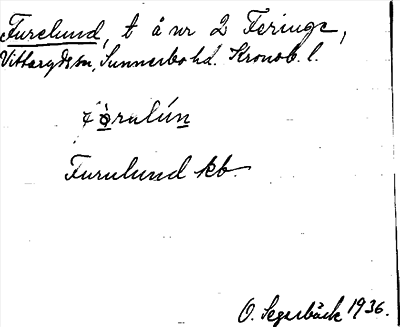 Furelund, t å nr 2 Feringe,
Vittarydssn, Sunnerbo hd. Kronob. l.
Furulund kb.
O. Segerbäck 1936.